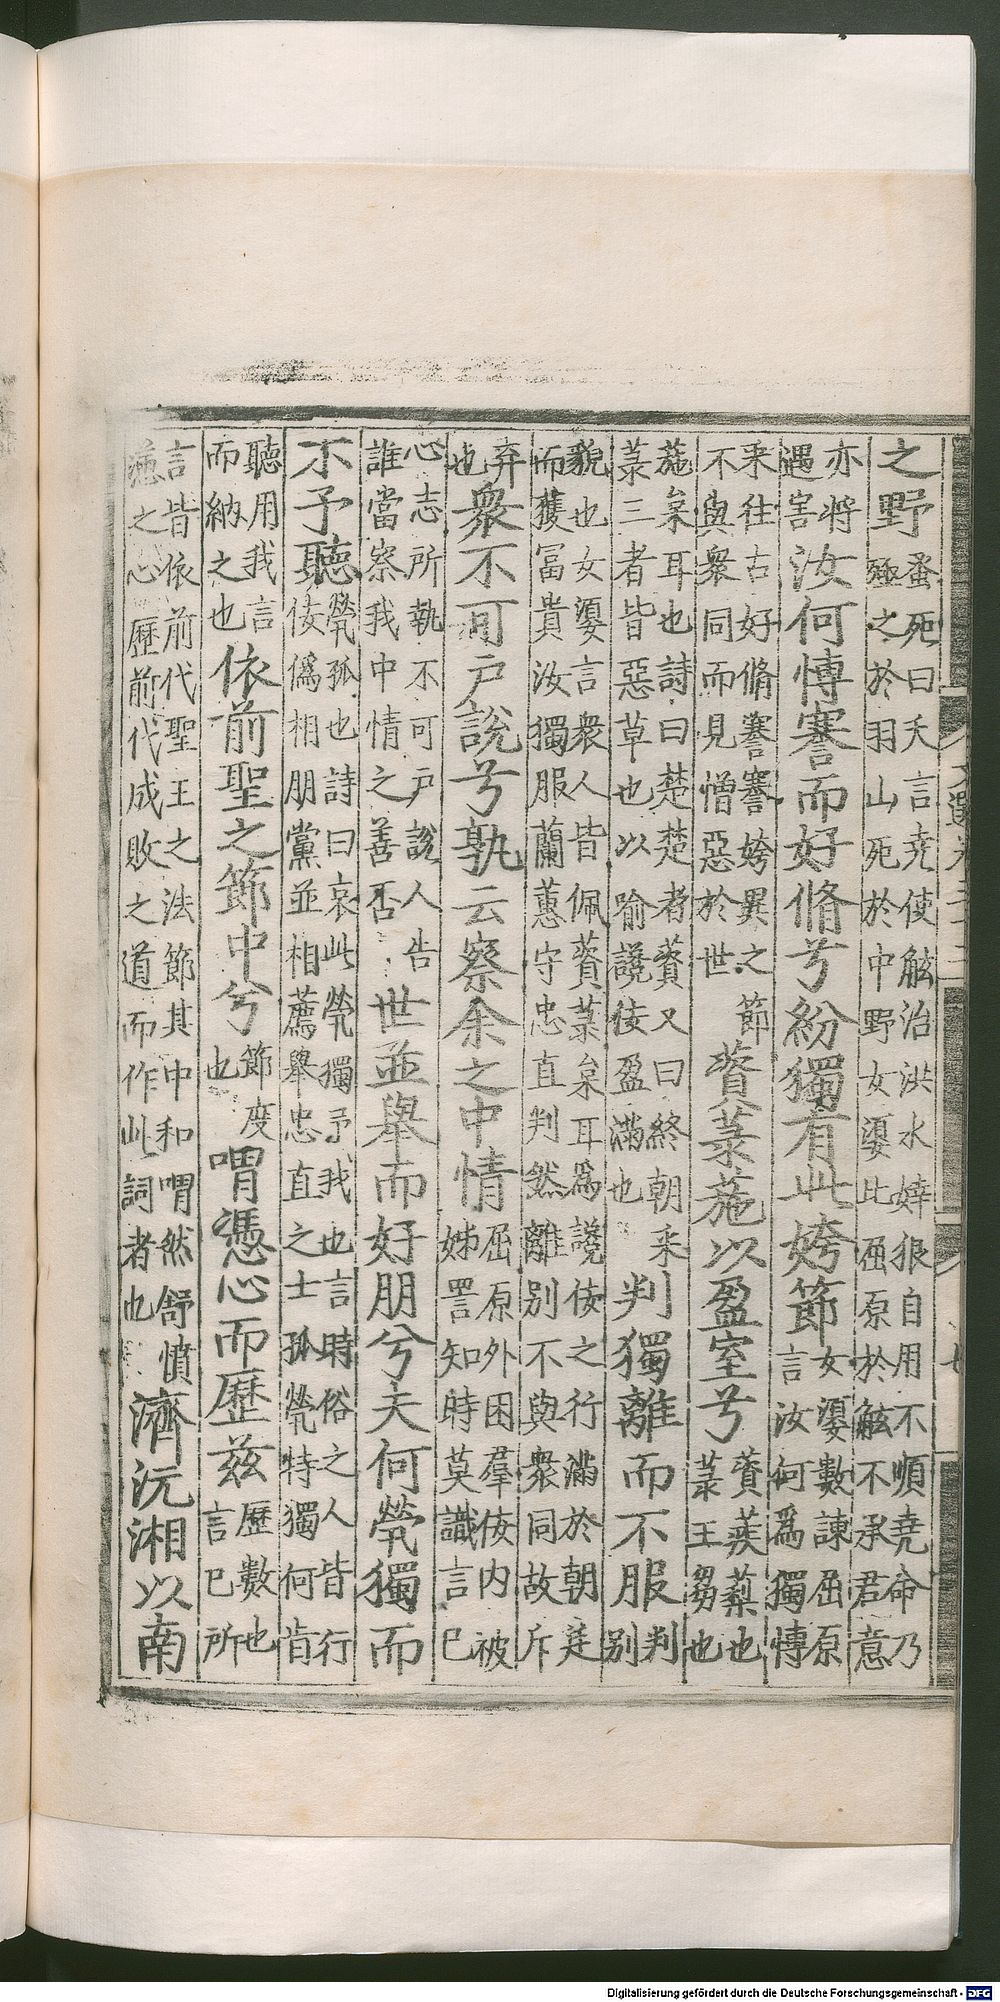 之野蚤死曰夭言堯使鮌治洪水婞狠自用不順堯命乃殛之於羽山死於中野女嬃比屈原於鮌不承君意
亦将遇害汝何博謇而好脩兮紛獨有此姱節女嬃數諫屈原言汝何為獨博
采往古好脩謇謇姱異之節不與衆同而見憎惡於世薋菉葹以盈室兮薋蒺蔾也菉王芻也
葹枲耳也詩曰楚楚者薋又曰終朝采菉三者皆惡草也以喻讒佞盈滿也判獨離而不服判別
貌也女嬃言衆人皆佩薋菉枲耳為讒佞之行滿於朝廷而獲富貴汝獨服蘭蕙守忠直判然離別不與衆同故斥
弃也衆不可户說兮孰云察余之中情屈原外困羣佞内被姊詈知時莫識言已
心志所執不可户說人告誰當察我中情之善否世並舉而好朋兮夫何煢獨而
不予聽煢孤也詩曰哀此煢獨予我也言時俗之人皆行佞偽相朋黨並相薦舉忠直之士孤煢特獨何肯
聽用我言而納之也依前聖之節中兮節度也喟憑心而歷茲歷數也言已所
言昔依前代聖王之法節其中和喟然舒憤懣之心歷前代成敗之道而作此詞者也濟沅湘以南
Digitalisierung gefördert durch die Deutsche Forschungsgemeinschaft - DFG